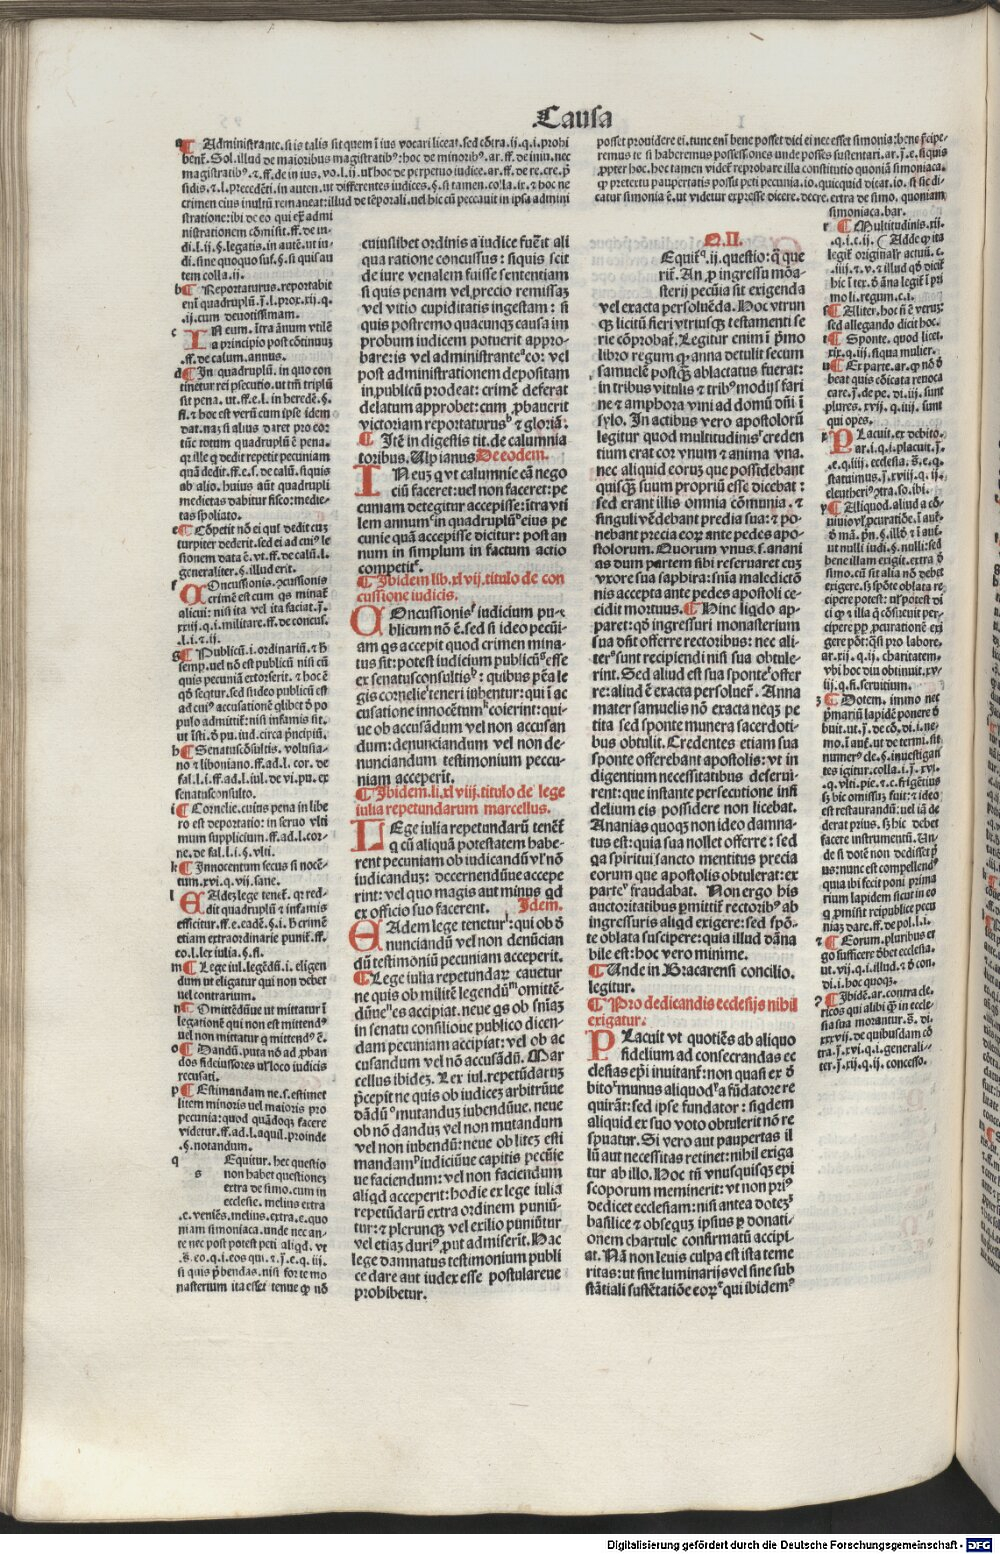 Causa
Administrante. si is talis sit quem ī ius vocari liceat. sed cōtra. ij. q. i. prohi
bent̄. Sol. illud de maioribus magistratibꝰ: hoc de minoribꝰ. ar. ff. de iniu. nec
magistratibꝰ. ⁊ ff. de in ius. vo. l. ij. ul̓ hoc de perpetuo iudice. ar. ff. de re. cre. p̄
sidis. ⁊ l. precedēti. in auten. ut differentes iudices. §. si tamen. colla. ix. ⁊ hoc ne
crimen eius inultū remaneat: illud de tēporali. uel hic cū peccauit in ipsa admini
stratione: ibi de eo qui ex̄ admi
nistrationem cōmisit. ff. de in
di. l. ij. §. legatis. in autē. ut iu
di. sine quoquo suf. §. si qui sau
tem colla. ij.
Reportaturus. reportabit
eni quadruplū. ī. l. prox. xij. q.
.ij. cum deuotissimam.
IN eum. ītra ānum vtilē
a principio post cōtinuus
.ff. de calum. annus.
In quadruplū. in quo con
tinetur rei psecutio. ut trīn triplū
sit pena. ut. ff. e. l. in heredē. §.
fi. ⁊ hoc est verū cum ipse idem
dat. naz si alius daret pro eo r
tūc totum quadruplū ē pena.
qr ille q̄ dedit repetit pecuniam
quā dedit. ff. e. s. de calū. si quis
ab alio. huius aūt quadrupli
medietas dabitur fisco: medie
tas spoliato.
Cōpetit nō ei qui dedit cuz
turpiter dederit. sed ei ad cuiꝰ le
sionem data ē. vt. ff. de calū. l.
generaliter. §. illud erit.
COncussionis. ɔcussionis
crimē est cum q̄s minat̄
alicui: nisi ita vel ita faciat. ī.
xxiij. q. i. militare. ff. de concus.
.l. i. ⁊ ij.
Publicū. i. ordinariū. ⁊ ħ
semp. uel nō est publicū nisi cū
quis pecuniā extorserit. ⁊ hoc ē
qd̄ seqtur. sed si ideo publicū est
ad cuiꝰ accusationē qlibet d̄ po
pulo admittit̄: nisi infamis sit.
ut īsti. d̄ pu. iud. circa p̄ncipiū.
Senatuscōsultis. volusia
no ⁊ liboniano. ff. ad. l. cor. de
fal. l. i. ff. ad. l. iul. de vi. pu. ex
senatusconsulto.
Cornelie. cuius pena in libe
ro est deportatio: in seruo vlti
mum supplicium. ff. ad. l. cor
ne. de fal. l. i. §. vlti.
Innocentum secus si nocē
tum. xvi. q. vij. sane.
EAdez lege tenet̄. qr red
dit quadruplū ⁊ infamis
efficitur. ff. e. eadē. §. i. ħ crimē
etiam extraordinarie punit̄. ff.
eo. l. ler iulia. §. fi.
Lege iul. legēdū. i. eligen
dum ut eligatur qui non debet
uel contrarium.
Omittēdūue ut mittatur ī
legationē qui non est mittendꝰ
uel non mittatur q̄ mittendꝰ ē.
Dandū. puta nō ad ꝓban
dos fideiussores ul̓ loco iudicis
recusati.
Estimandam ne. s. estimet
litem minoris uel maioris pro
pecunia: quod quādoq̄z facere
videtur. ff. ad. l. aquil. proinde
.§. notandum.
SEquitur. hec questio
non habet questiones
extra de simo. cum in
ecclesie. melius extra
.e. veniēs. melius. extra. e. quo
niam simoniaca. unde nec an-
te nec post potest peti aliqd. vt
.s̄. eo. q. i. eos qui. ⁊ ī. e. q. iij.
si quis p̄bendas. nisi forte mo
nasterium ita esset tenue ꝙ nō
posset prouidere ei. tunc eni bene posset dici ei nec esset simonia: bene p̄cipe-
remus te si haberemus possessiones unde posses sustentari. ar. ī. e. si quis
ꝓpter hoc. hoc tamen videt̄ reprobare illa constitutio quoniā simoniaca.
q̄ pretextu paupertatis possit peti pecunia. io. quicquid dicat. io. si sic di-
catur simonia ē. ut videtur expresse dicere. decre. extra de simo. quoniam
simoniaca. bar.
cuiuslibet ordinis a iudice fuerit ali
qua ratione concussus: si quis scit
de iure venalem fuisse sententiam
si quis penam vel precio remissaz
vel vitio cupiditatis ingestam: si
quis postremo quacunqz causa im
probum iudicem potuerit appro-
bare: is vel administrante eo: vel
post administrationem depositam
in publicū prodeat: crimē deferat
delatum approbet: cum ꝓbauerit
victoriam reportaturus ⁊ gloriā.
Itē in digestis tit. de calumnia
toribus. Ulpianus De eodem.
IN euz q̄ vt calumnie cā nego
ciū faceret: uel non faceret: pe
cuniam detegitur accepisse: ītra vti
lem annum in quadruplū eius pe
cunie quā accepisse dicitur: post an
num in simplum in factum actio
competit.
Ibidem lib. xlvij. titulo de con
cussione iudicis.
COncussionis iudicium pu-
blicum nō ē. sed si ideo pecūi-
am q̄s accepit quod crimen mina-
tus sit: potest iudicium publicū esse
ex senatusconsultis: quibus pēa le
gis cornelie teneri iubentur: qui ī ac
cusatione innocētum coierint: qui-
ue ob accusādum vel non accusan
dum: denunciandum vel non de-
nunciandum testimonium peccu-
niam acceperit.
Ibidem. li. xlviij. titulo de lege
iulia repetundarum marcellus.
LEge iulia repetundarū tenet̄
q̄ cū aliquā potestatem habe-
rent pecuniam ob iudicandū vl̓ nō
iudicanduz: decernendūue accepe
rint: vel quo magis aut minus qd
ex officio suo facerent. Idem.
EAdem lege tenetur: qui ob d̄
nunciandū vel non denūcian
dū testimoniū pecuniam acceperit.
Lege iulia repetundaꝝ cauetur
ne quis ob militē legendū omittē-
dūue es accipiat. neue q̄s ob sn̄iaz
in senatu consilioue publico dicen-
dam pecuniam accipiat: vel ob ac
cusandum vel nō accusādū. Mar
cellus ibidez. Lex iul. repetūdarūz
p̄cepit ne quis ob iudicez arbitrūue
dādū mutanduz iubendūue. neue
ob nō danduz vel non mutandum
vel non iubendū: neue ob litez esti
mandam iudiciūue capitis pecūie
ue faciendum: vel non faciendum
aliqd acceperit: hodie ex lege iulia
repetūdarū extra ordinem puniū-
tur: ⁊ plerunqz vel exilio puniūtur
vel etiaz duriꝰ ꝓut admiserit. Hac
lege damnatus testimonium publi
ce dare aut iudex esse postulareue
prohibetur.
Q. II.
SEquit̄. ij. questio: q̄ que
rit̄. An ꝓ ingressu mōa-
sterij pecūia sit exigenda
vel exacta persoluēda. Hoc vtrun
qz licitū fieri vtriusqz testamenti se
rie cōprobat̄. Legitur enim ī p̄mo
libro regum ꝙ anna detulit secum
samuelē postq̄ ablactatus fuerat:
in tribus vitulis ⁊ tribꝰ modijs fari
ne ⁊ amphora vini ad domū dn̄i ī
sylo. In actibus vero apostolorū
legitur quod multitudinis creden
tium erat cor vnum ⁊ anima vna.
nec aliquid eoruz que possidebant
quisq̄ suum propriū esse dicebat:
sed erant illis omnia cōmunia. ⁊
singuli vēdebant predia sua: ⁊ po-
nebant precia eoꝝ ante pedes apo-
stolorum. Quorum vnus. s. anani
as dum partem sibi reseruaret cuz
vxore sua saphira: sn̄ia maledictō
nis accepta ante pedes apostoli ce-
cidit mortuus. Hinc liqdo ap-
paret: qd̄ ingressuri monasterium
sua dn̄t offerre rectoribus: nec ali-
ter sunt recipiendi nisi sua obtule-
rint. Sed aliud est sua sponte offer
re: aliud ē exacta persoluer̄. Anna
mater samuelis nō exacta neqz pe
tita sed sponte munera sacerdoti-
bus obtulit. Credentes etiam sua
sponte offerebant apostolis: vt in
digentium necessitatibus deserui-
rent: que instante persecutione infi
delium eis possidere non licebat.
Ananias quoqz non ideo damna-
tus est: quia sua nollet offerre: sed
qa spiritui sancto mentitus precia
eorum que apostolis obtulerat: ex
parte fraudabat. Non ergo his
auctoritatibus ꝑmittit̄ rectoribꝰ ab
ingressuris aliqd exigere: sed spō-
te oblata suscipere: quia illud dāna
bile est: hoc vero minime.
Unde in Bracarensi concilio.
legitur.
Pro dedicandis ecclesijs nihil
exigatur.
PLacuit vt quotiēs ab aliquo
fidelium ad consecrandas ec
clesias epi inuitant̄: non quasi ex d̄
bito munus aliquod a fūdatore re
quirāt: sed ipse fundator: siqdem
aliquid ex suo voto obtulerit nō re
spuatur. Si vero aut paupertas il
lū aut necessitas retinet: nihil exiga
tur ab illo. Hoc tn̄ vnusquisqz epi
scoporum meminerit: vt non priꝰ
dedicet ecclesiam: nisi antea dotez
basilice ⁊ obsequiz ipsius ꝑ donati-
onem chartule confirmatū accipi-
at. Nā non leuis culpa est ista teme
ritas: ut sine luminarijs vel sine sub
stātiali sustētatiōe eoꝝ qui ibidemꝰ
Multitudinis. xij.
.q. i. c. ij. Adde ꝙ ita
legit̄ originalr̄ actuū. c.
.iiij. ⁊. v. ⁊ illud qd̄ dicit̄
hic ī tex. d̄ āna legit̄ ī pri
mo li. regum. c. i.
Aliter. hoc n̄ ē vtrūz:
sed allegando dicit hoc.
Sponte. quod licet.
xix. q. iij. siqua mulier.
Ex parte. ar. ꝙ nō d̄
beat quis cōicata renoca
care. ī. de pe. di. iij. sunt
plures. xvij. q. iiij. sunt
qui opes.
PLacuit. ex debito.
ar. i. q. i. placuit. ī.
.e. q. iiij. ecclesia. s̄. e. q.
statuimus. ī. xviij. q. ij.
eleutherij ɔtra. so. ibi.
Aliquod. aliud a cō-
uiuio ul̓ ꝓcuratiōe. ī aut̄.
d̄ mā. p̄n. §. illd̄ ⁊ ī aut̄.
ut nulli iudi. §. nulli: sed
bene illam exigit. extra d̄
simo. cū sit alia nō debet
exigere. sz spōte oblata re
cipere potest: ul̓ potest di
ci ꝙ ⁊ illa q̄ cōsueuit per-
cipere ꝓp̄ ꝓcurationē exi
gere pōt: qsi pro labore.
ar. xij. q. ij. charitatem.
vbi hoc diu obtinuit. xv
iij. q. fi. seruitium.
Dotem. immo nec
p̄mariū lapidē ponere d̄
buit. ut. ī. de cō. di. i. ne-
mo. ī aut̄. ut de termi. sit
numerꝰ cle. §. inuestigan
tes igitur. colla. i. ī. xvi.
.q. vlti. pie. ⁊ c. frigētius
sz hic omissuz fuit: ⁊ ideo
est restaurandū: uel iā de
derat prius. sz hic debet
facere instrumentū. Tan-
de si dotē non dedisset p̄
us: nunc est compellendꝰ
quia ibi fecit poni prima
rium lapidem sicut in eo
q̄ ꝓmisit reipublice pecu
niaz dare. ff. de pol. l. i.
Eorum. pluribus er
go sufficere d̄bet ecclesia.
ut. vij. q. i. illud. ⁊ d̄ con.
di. i. hoc quoqz.
Ibidē. ar. contra cle.
ricos qui alibi q̄ in eccle-
sia sua morantur. s̄. di.
xxxvij. de quibusdam cō
tra. ī. xvi. q. i. generali-
ter. ī. xij. q. ij. concesso.
Digitalisierung gefördert durch die Deutsche Forschungsgemeinschaft - DFG